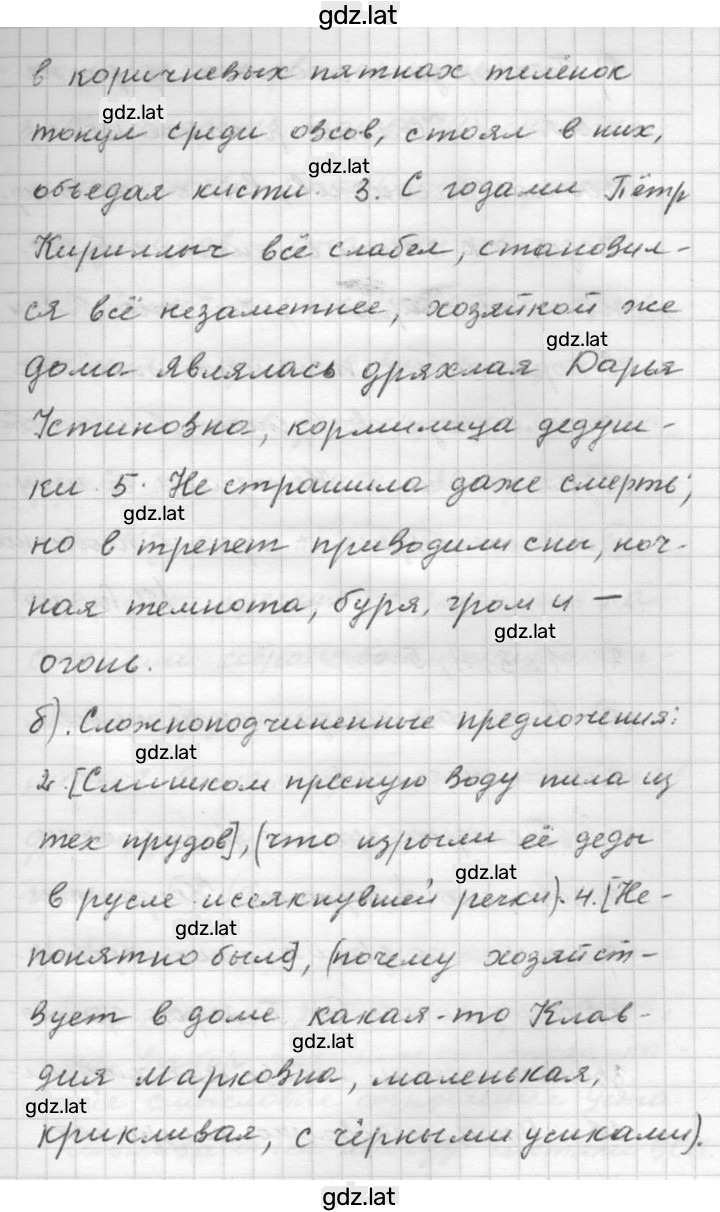 gdz.lat
в коричневых пятнах телёнок
gdz.lat
тонул среди овсов, стоял в них,
gdz.lat
объедая кисти. 3. С годами Пётр
Кириллыч всё слабел, становил-
ся всё незаметнее, хозяйкой же
gdz.lat
дома являлась дряхлая Дарья
Устиновна, кормилица дедуш-
ки. 5. Не страшила даже смерть;
gdz.lat
но в трепет приводили сны, ноч-
ная темнота, буря, гром и –
gdz.lat
огонь.
б). Сложноподчиненные предложения:
gdz.lat
2. [Слишком пресную воду пила из
тех прудов], (что изрыли её деды
gdz.lat
в русле иссякнувшей речки). 4. [Не-
gdz.lat
понятно было], (почему хозяйст-
вует в доме какая-то Клав-
gdz.lat
дия Марковна, маленькая,
gdz.lat
крикливая, с чёрными усиками).
gdz.lat